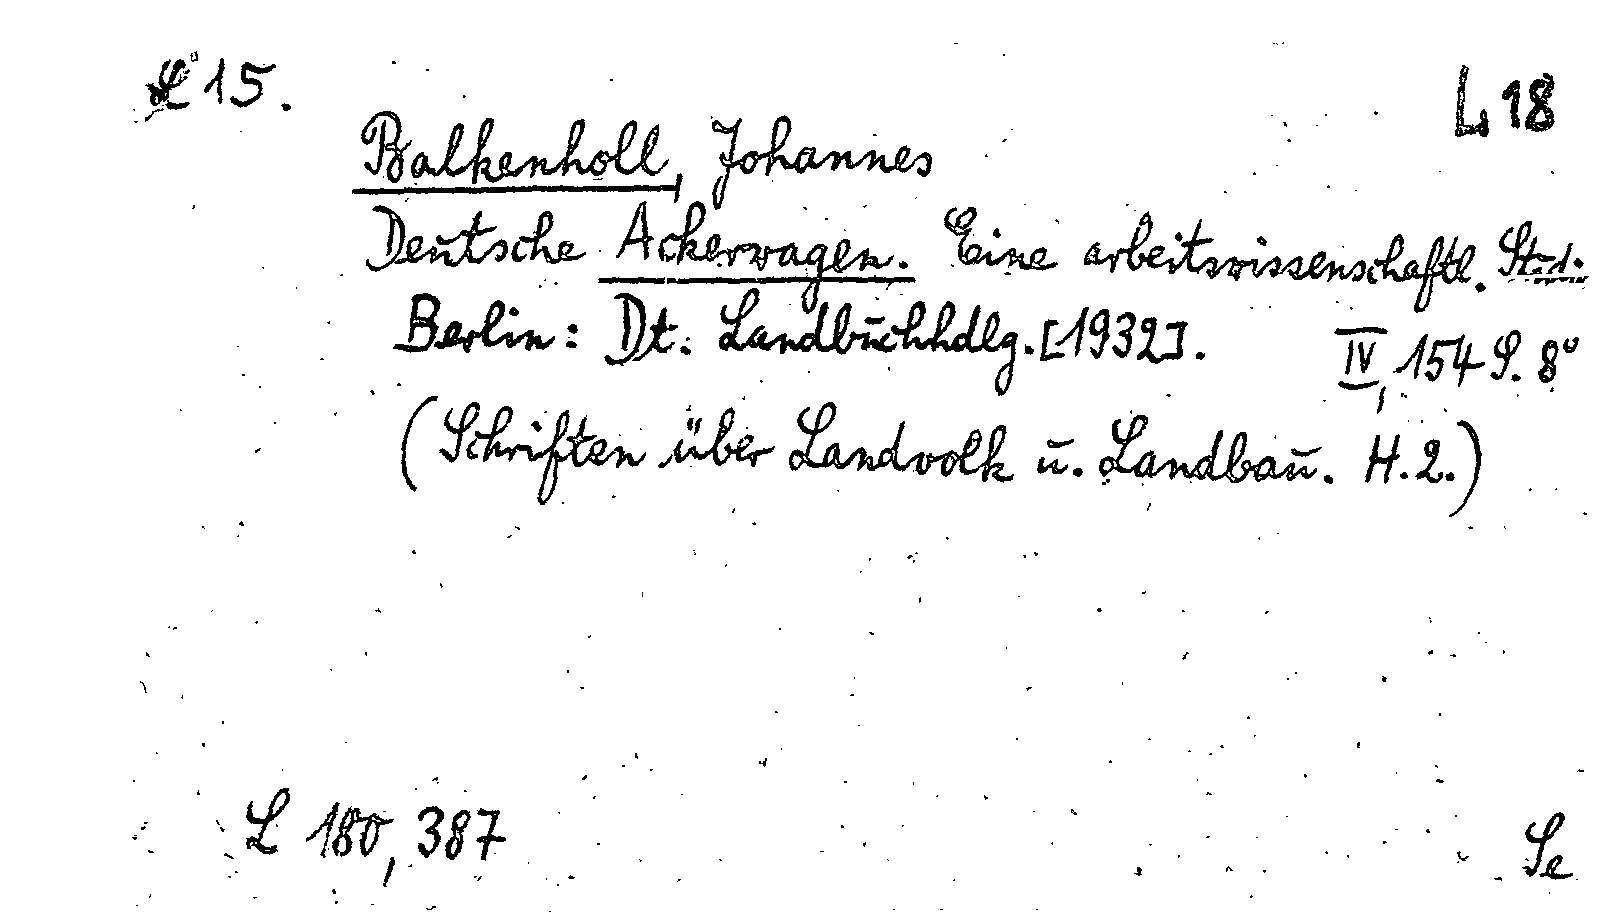 L 15.
L 18
Balkenholl, Johannes
Deutsche Ackerwagen. Eine arbeitswissenschaftl. Stud.
Berlin: Dt. Landbuchhdlg. [1932]. IV, 154 S. 8°
(Schriften über Landvolk u. Landbau. H. 2.)
L 180, 387
Se